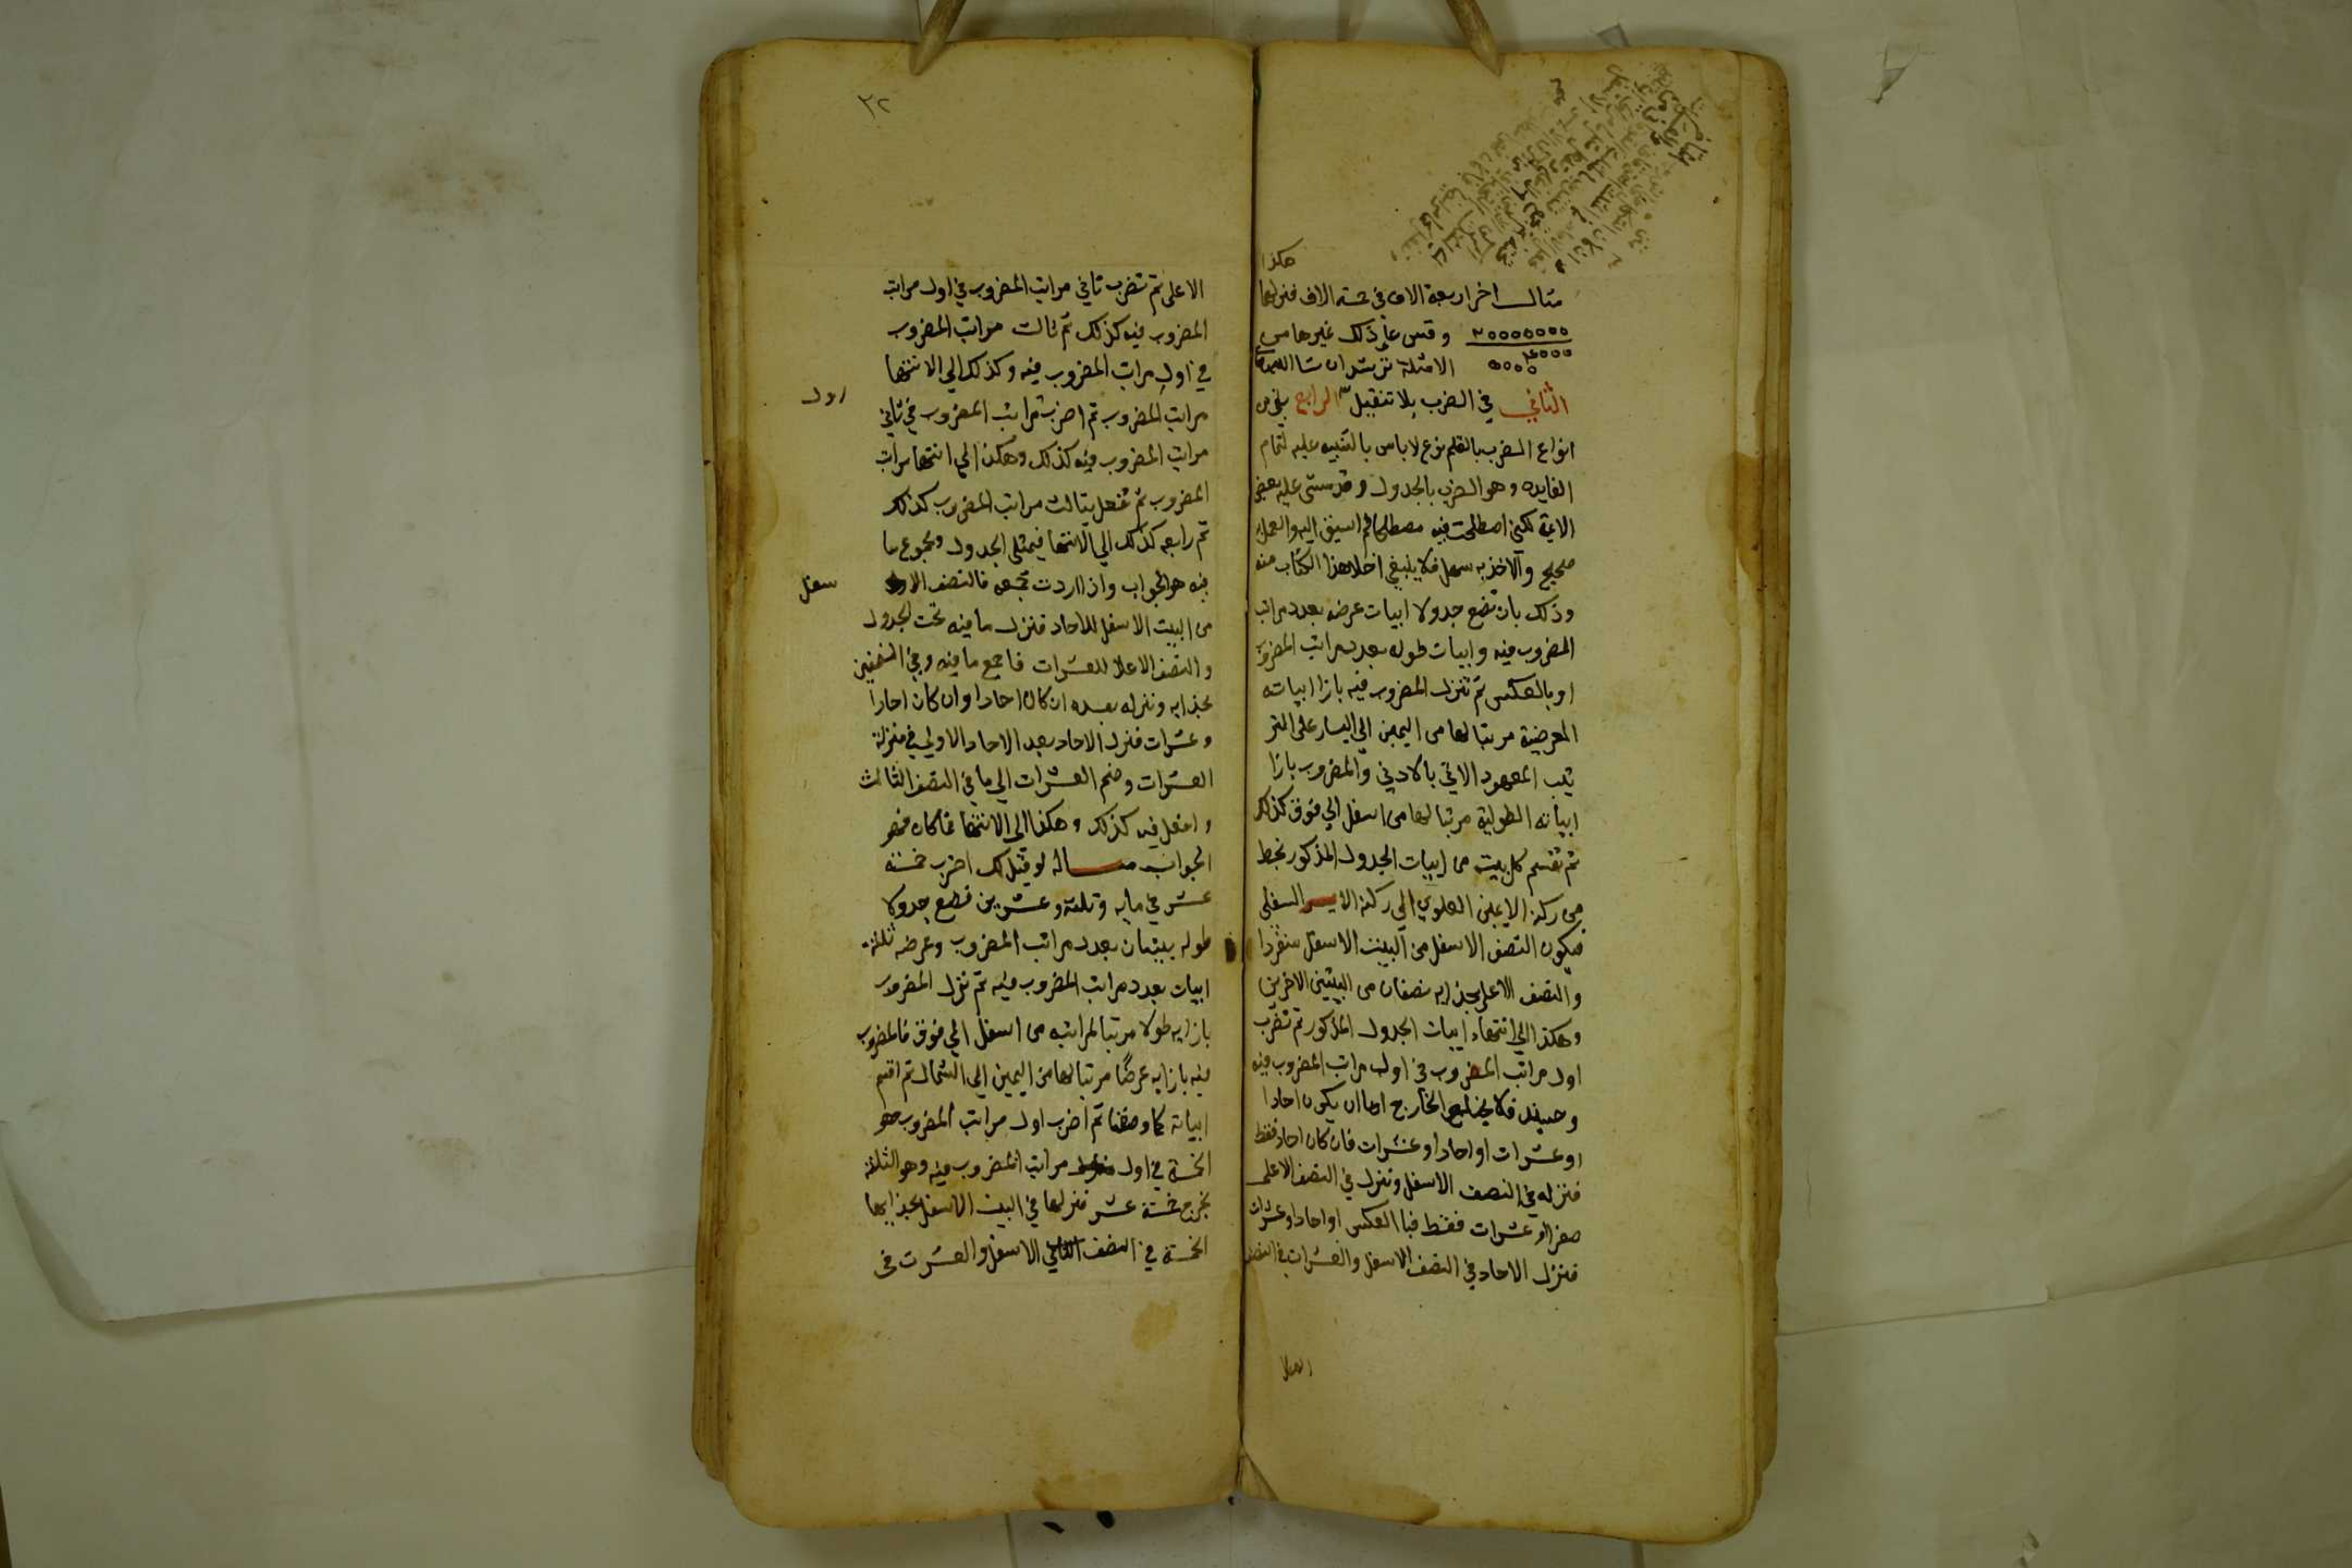 هكذا
مثال اخر اربعة الاف في خمسة الاف فنزلها
٢٠٠٠٠٠٠٠ وقس علي ذلك غيرها من
٤٠٠٠
٥٠٠٠ الامثلة ترشد ان شا الله
الثاني في الضرب بلا تنقيل الرابع بقي من
انواع الضرب بالقلم نوع لاباس بالتنبيه عليه لتمام
الفايده وهو الضرب بالجدول وقد مشي عليه بعض
الايمة لكني اصطلحت فيه مصطلحا لم اسبق اليه والعمل
صحيح والاخذ به سهل فلا ينبغي اخلا هذا الكتاب منه
وذلك بان تضع جدولا ابيات عرضه بعدد مراتب
المضروب فيه وابيات طوله بعدد مراتب المضروب
او بالعكس ثم تنزل المضروب فيه بازا ابياته
العرضية مرتبا لها من اليمين الي اليسار على التر
تيب المعهود الاتي بالادني والمضروب بازا
ابياته الطولية مرتبا لها من اسفل الي فوق كذلك
ثم تقسم كل بيت من ابيات الجدول المذكور بخط
من ركنه الايمن العلوي الي ركنه الايسر السفلي
فيكون النصف الاسفل من البيت الاسفل منفردا
والنصف الاعلي بحذايه نصفان من البيتين الاخرين
وهكذا الي انتهاء ابيات الجدول المذكور ثم تضرب
اول مراتب المضروب في اول مراتب المضروب فيه
وحينيذ فلا يخلو الخارج اما ان يكون احادا
او عشرات او احادا وعشرات فان كان احاد فقط
فنزله في النصف الاسفل وتنزل في النصف الاعلى
صفرا او عشرات فقط فبا العكس او احادا وعشرات
فنزل الاحاد في النصف الاسفل والعشرات في النصف
٣٢
الاعلى ثم تضرب ثاني مراتب المضروب في اول مراتب
المضروب فيه كذلك ثم ثالث مراتب المضروب
في اول مراتب المضروب فيه وكذلك الي الانتها
مراتب المضروب ثم اضرب مراتب المضروب في ثاني
اول
مراتب المضروب فيه كذلك وهكذا الي انتها مراتب
المضروب ثم تفعل بثالث مراتب المضروب كذلك
ثم رابعه كذلك الي الانتها فيمتلي الجدول ومجموع ما
فيه هو الجواب واذا اردت جمعه فالنصف
سفل
من البيت الاسفل للاحاد فنزل ما فيه تحت الجدول
والنصف الاعلا للعشرات فاجمع ما فيه وفي النصفين
بحذايه ونزله بعده ان كان احادا وان كان احادا
وعشرات فنزل الاحاد بعد الاحاد الاولي في منزلة
العشرات وضم العشرات الي ما في النصف الثالث
وافعل فيه كذلك وهكذا الي الانتها فما كان فهو
الجواب مسالة لو قيل لك اضرب خمسة
عشر في مايه وثلثة وعشرين فضع جدولا
طوله بيتان بعدد مراتب المضروب وعرضه ثلثة
ابيات بعدد مراتب المضروب فيه ثم نزل المضروب
بازايه طولا مرتبا لمراتبه من اسفل الي فوق فالمضروب
فيه بازايه عرضًا مرتبا لها من اليمين الي الشمال ثم اقسم
ابياته كما وصفنا ثم اضرب اول مراتب المضروب هو
الخمسة في اول مراتب المضروب فيه وهو الثلاثة
يخرج خمسة عشر فنزلها في البيت الاسفل بحذايها
الخمسة في النصف الاسفل والعشرت في